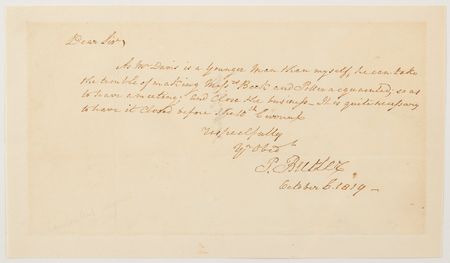 Dear Sir,
As Mr Davis is a Younger Man than myself, he can take
the trouble of making Messrs Beck and acquainted, so as
to have a meeting; and Close the business - It is quite necessary
to have it Closed before the 10th
respectfully
Yr Obdt
P. Butler
October 6. 1819 -